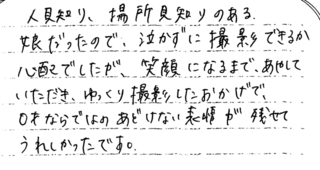 人見知り、場所見知りのある
娘だったので、泣かずに撮影できるか
心配でしたが、笑顔になるまで、あやして
いただき、ゆっくり撮影したおかげで、
0才ならではのあどけない表情が残せて
うれしかったです。